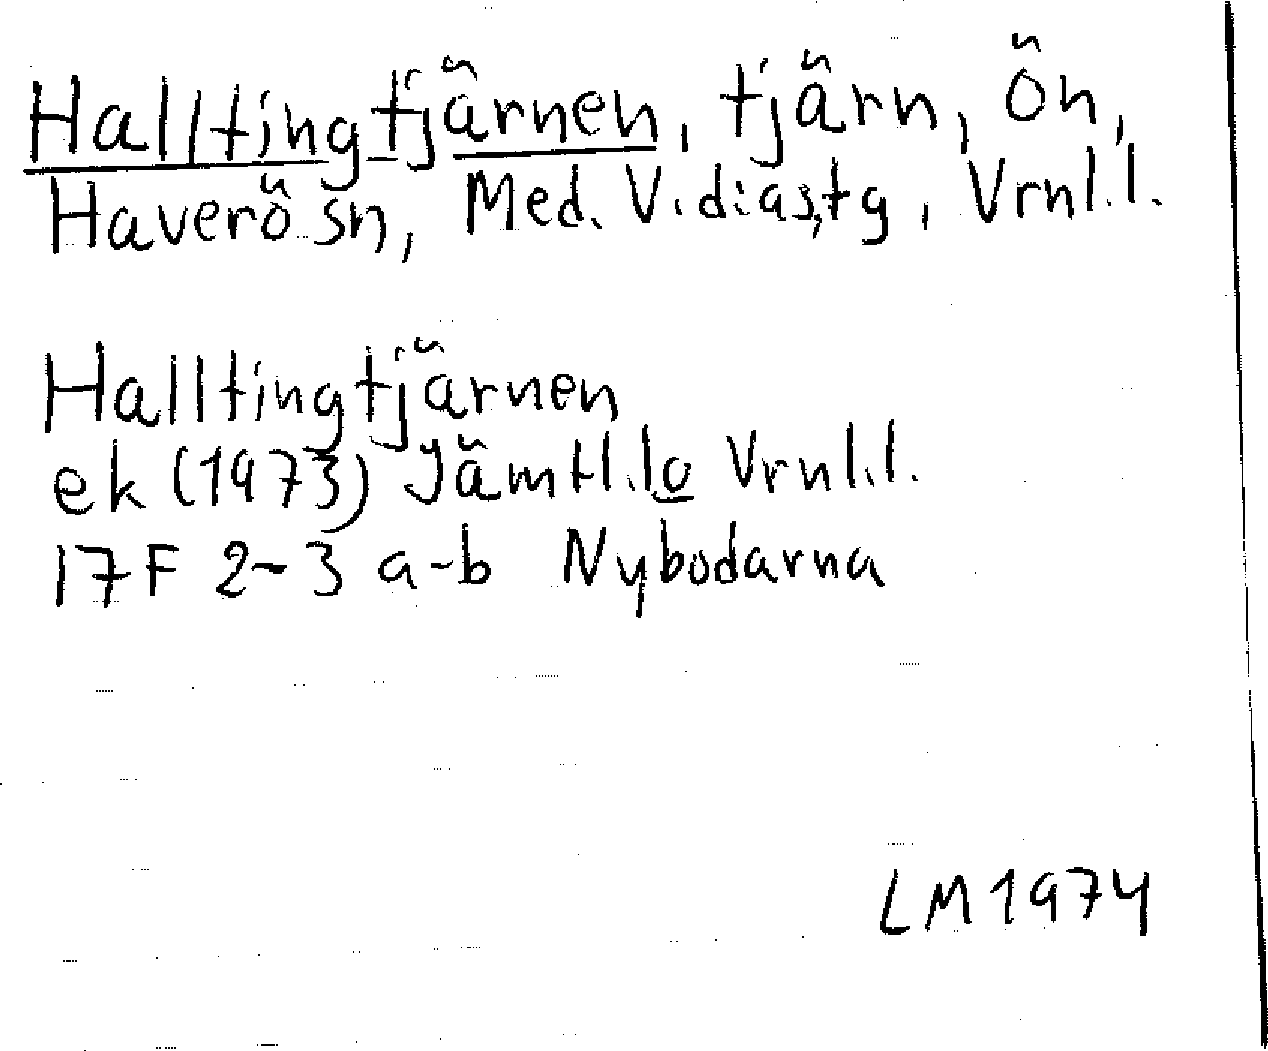 Halltingtjärnen, tjärn, Ön,
Haverö sn, Med. V. dias,tg, Vrnl.l.
Halltingtjärnen
ek (1973) Jämtl.lo Vrnl.l.
17F 2-3 a-b Nybodarna
LM 1974